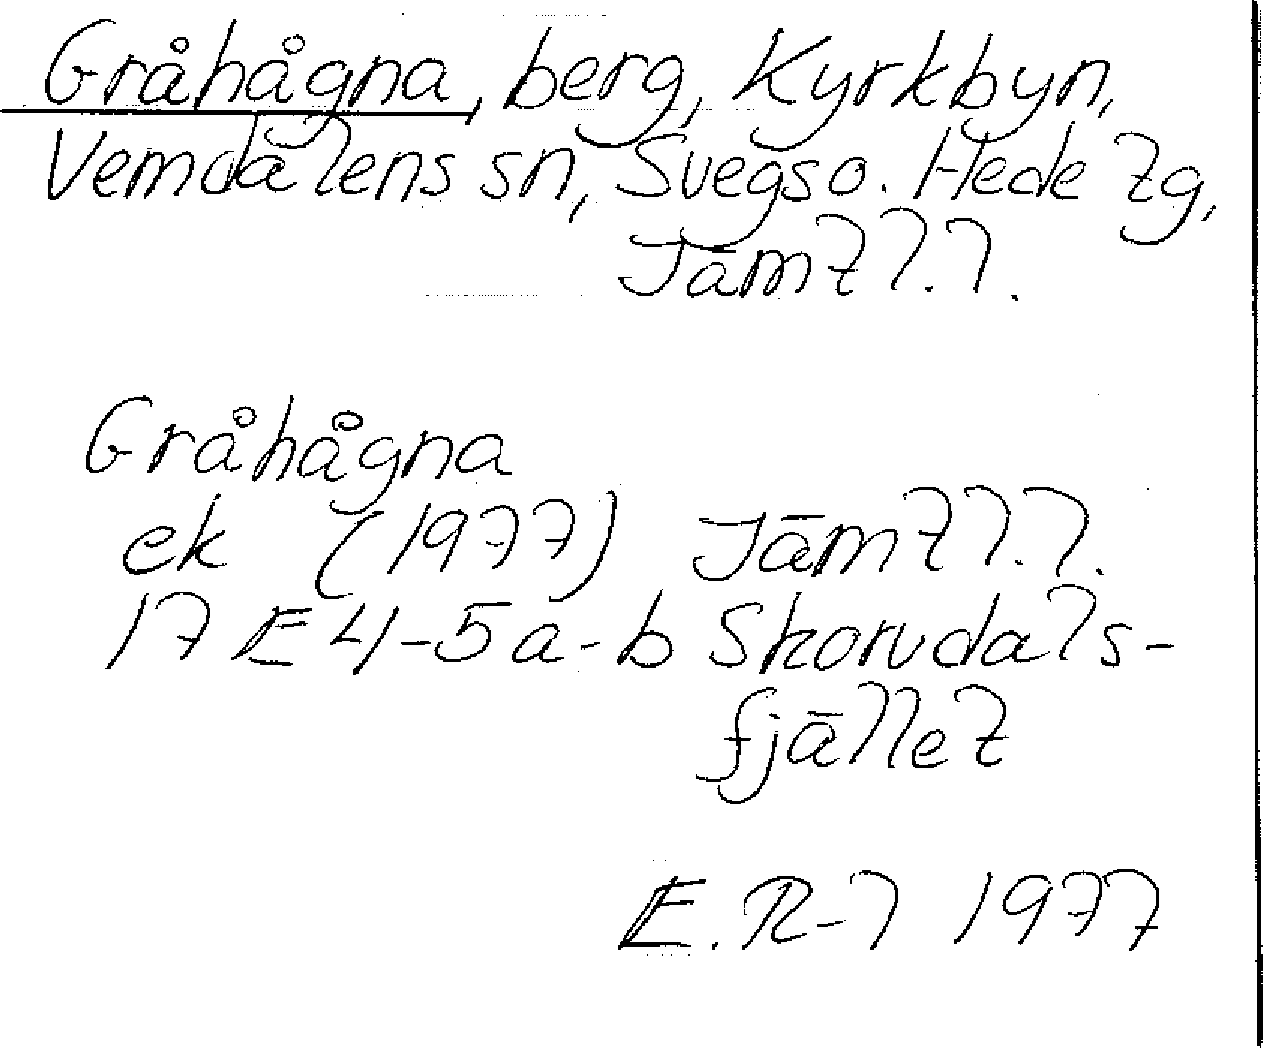 Gråhågna, berg, Kyrkbyn,
Vemdalens sn, Svegs o. Hede tg,
Jämtl. l.
Gråhågna
ek (1977) Jämtl. l.
17 E 4-5 a-b Skorvdals-
fjället
E. R-l 1977